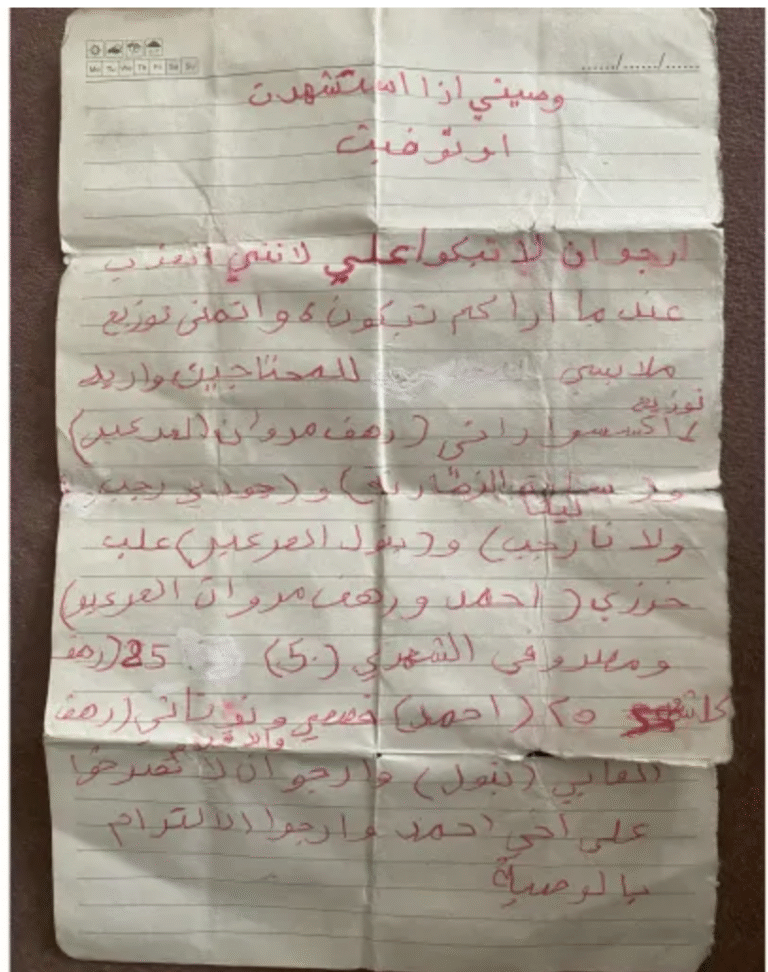 Mo Tu We Th Fr Sa Su
....../....../......
وصيتي اذا استشهدت
او توفيت
ارجو ان لا تبكوا علي لانني اتعذب
عند ما اراكم تبكون، واتمنى توزيع
ملابسي للمحتاجين واريد
توزيع
اكسسواراتي (رهف مروان العرعير)
و(سارة) و(جودي رجب)
لينا
ولانا رجب) و(بتول العرعير) علب
خرزي (احمد ورهف مروان العرعير)
ومصروفي الشهري (50) 25 (رهف
كل شهر ٢٥ (احمد) قصصي ودفاتري (رهف
العابي (بتول) وارجو ان لا تصرخوا
على اخي احمد وارجوا الالتزام
بالوصية